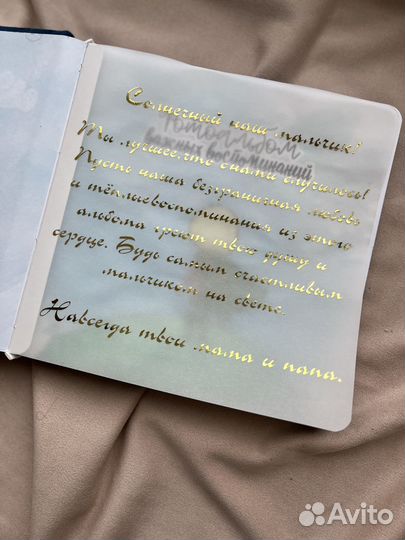 Солнечный наш мальчик!
Фотоальбом
важных воспоминаний
Ты лучшее,что с нами случилось!
Пусть наша безграничная любовь
и тёплыевоспоминания из этого
альбома греют твою душу и
сердце. Будь самым счастливым
мальчиком на свете.
Навсегда твои мама и папа.
Avito